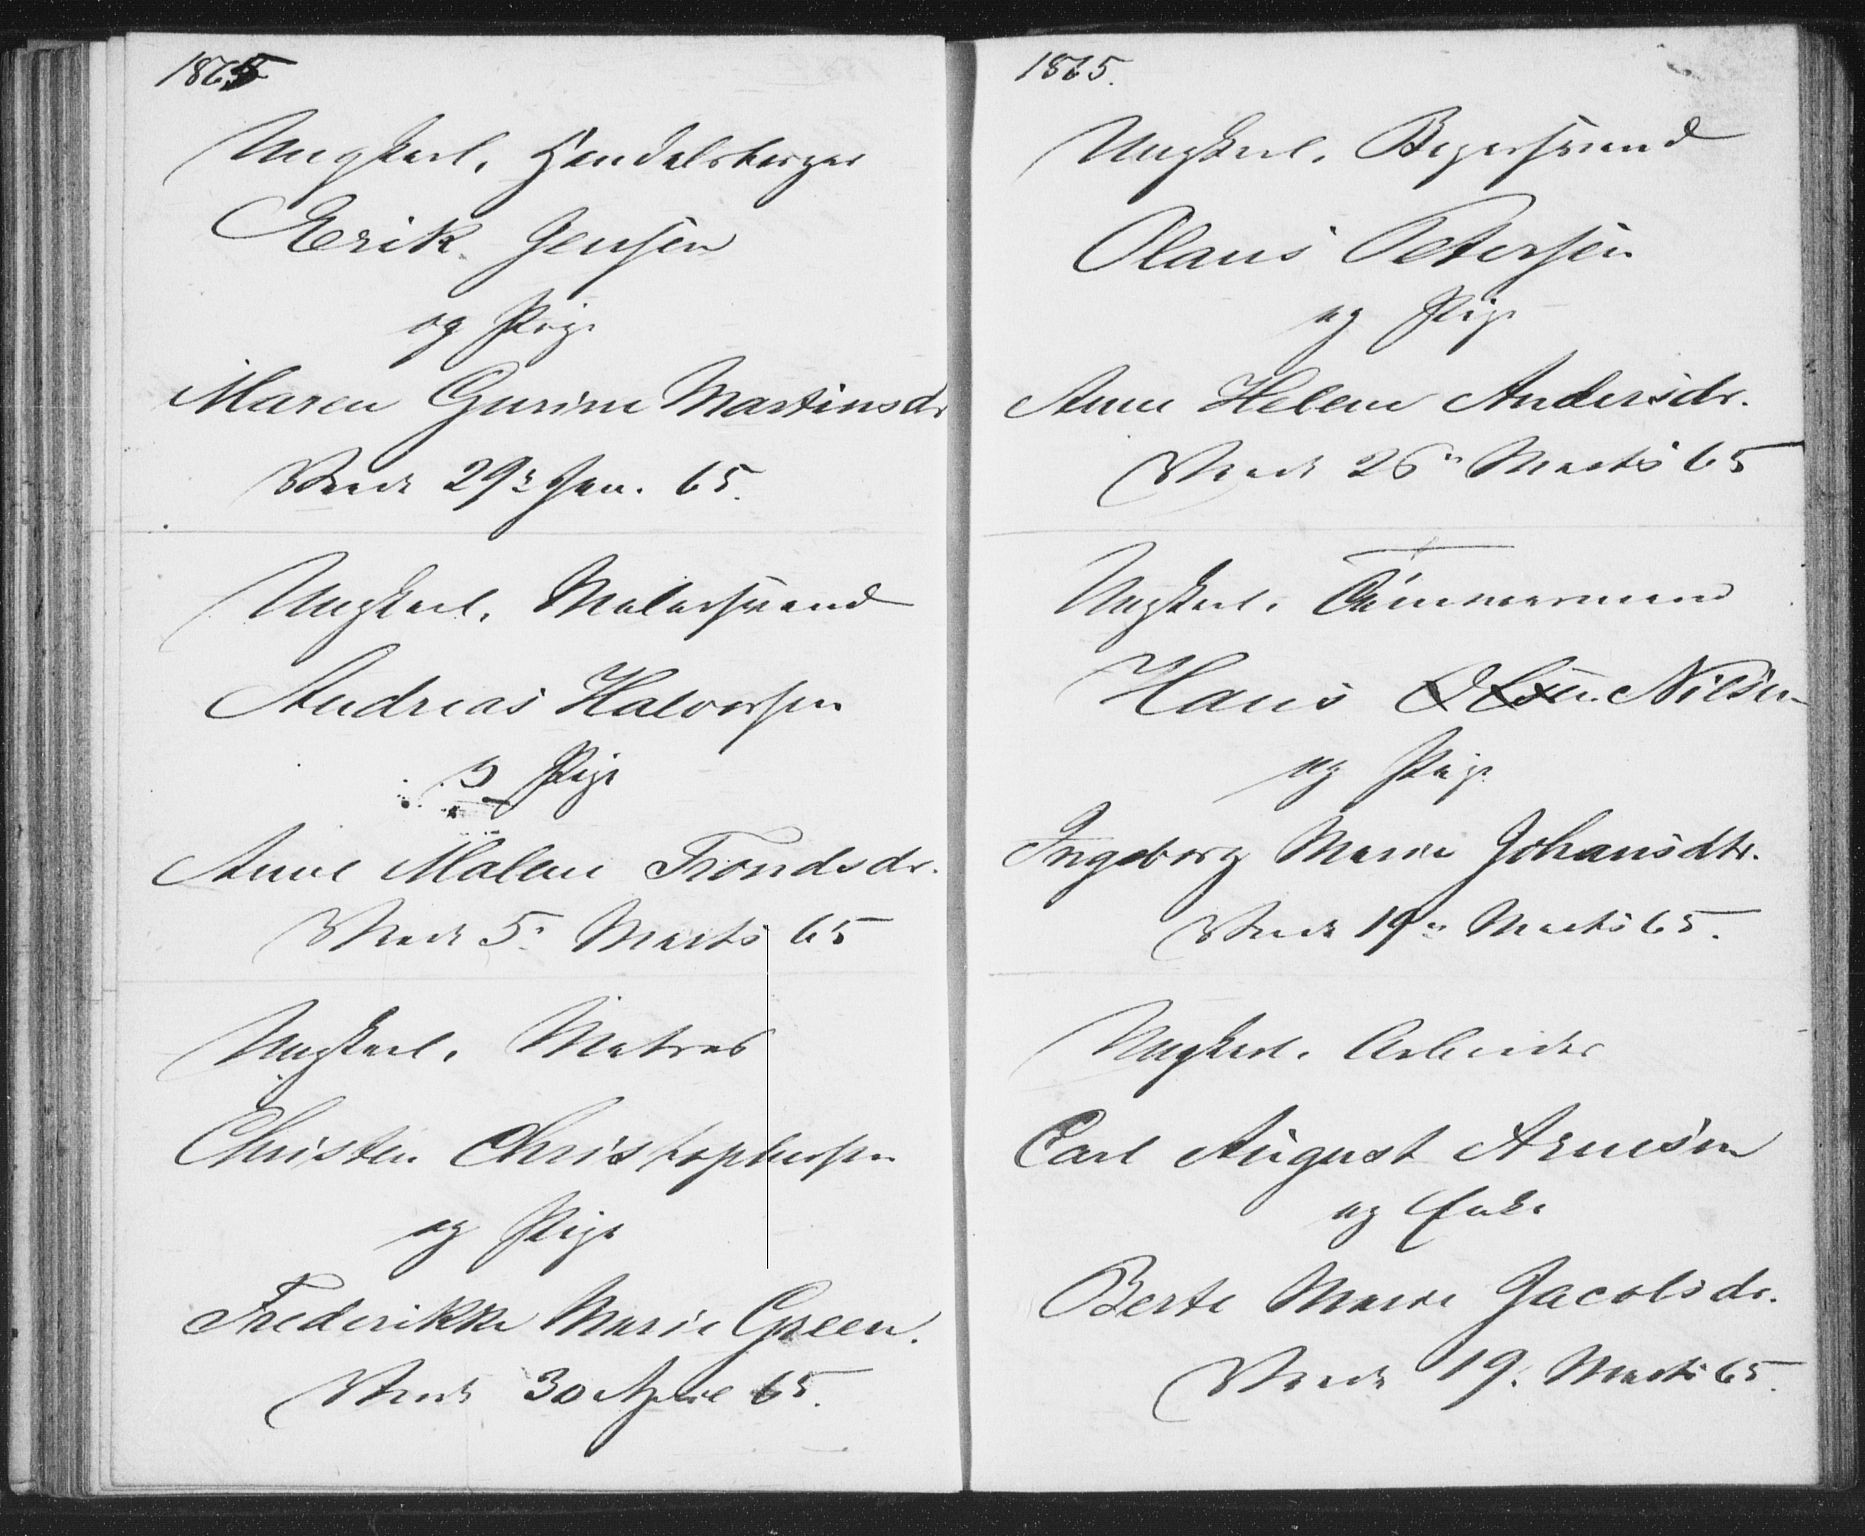 1865
Ungkarl, Handelsborger
Erik Jensen
og Pige
Maren Gurine Martinsdr
Viede 29de Jan. 65.
Ungkarl, Malersvend
Andreas Halvorsen
og Pige
Anne Malene Trondsdr.
Viede 5. Marts 65
Ungkarl, Matros
Christen Christophersen
og Pige
Frederikke Marie Green.
Viede 30 April 65.
1865.
Ungkarl, Bagersvend
Olaus Petersen
og Pige
Anne Helene Andersdr.
Viede 26 Marts 65
Ungkarl, Tømmermand
Hans Olsen Nilsen
og Pige
Ingeborg Marie Johansdtr.
Viede 19de Marts 65.
Ungkarl, Arbeider
Carl August Arnesen
og Enke
Berte Marie Jacobsdr.
Viede 19. Marts 65.